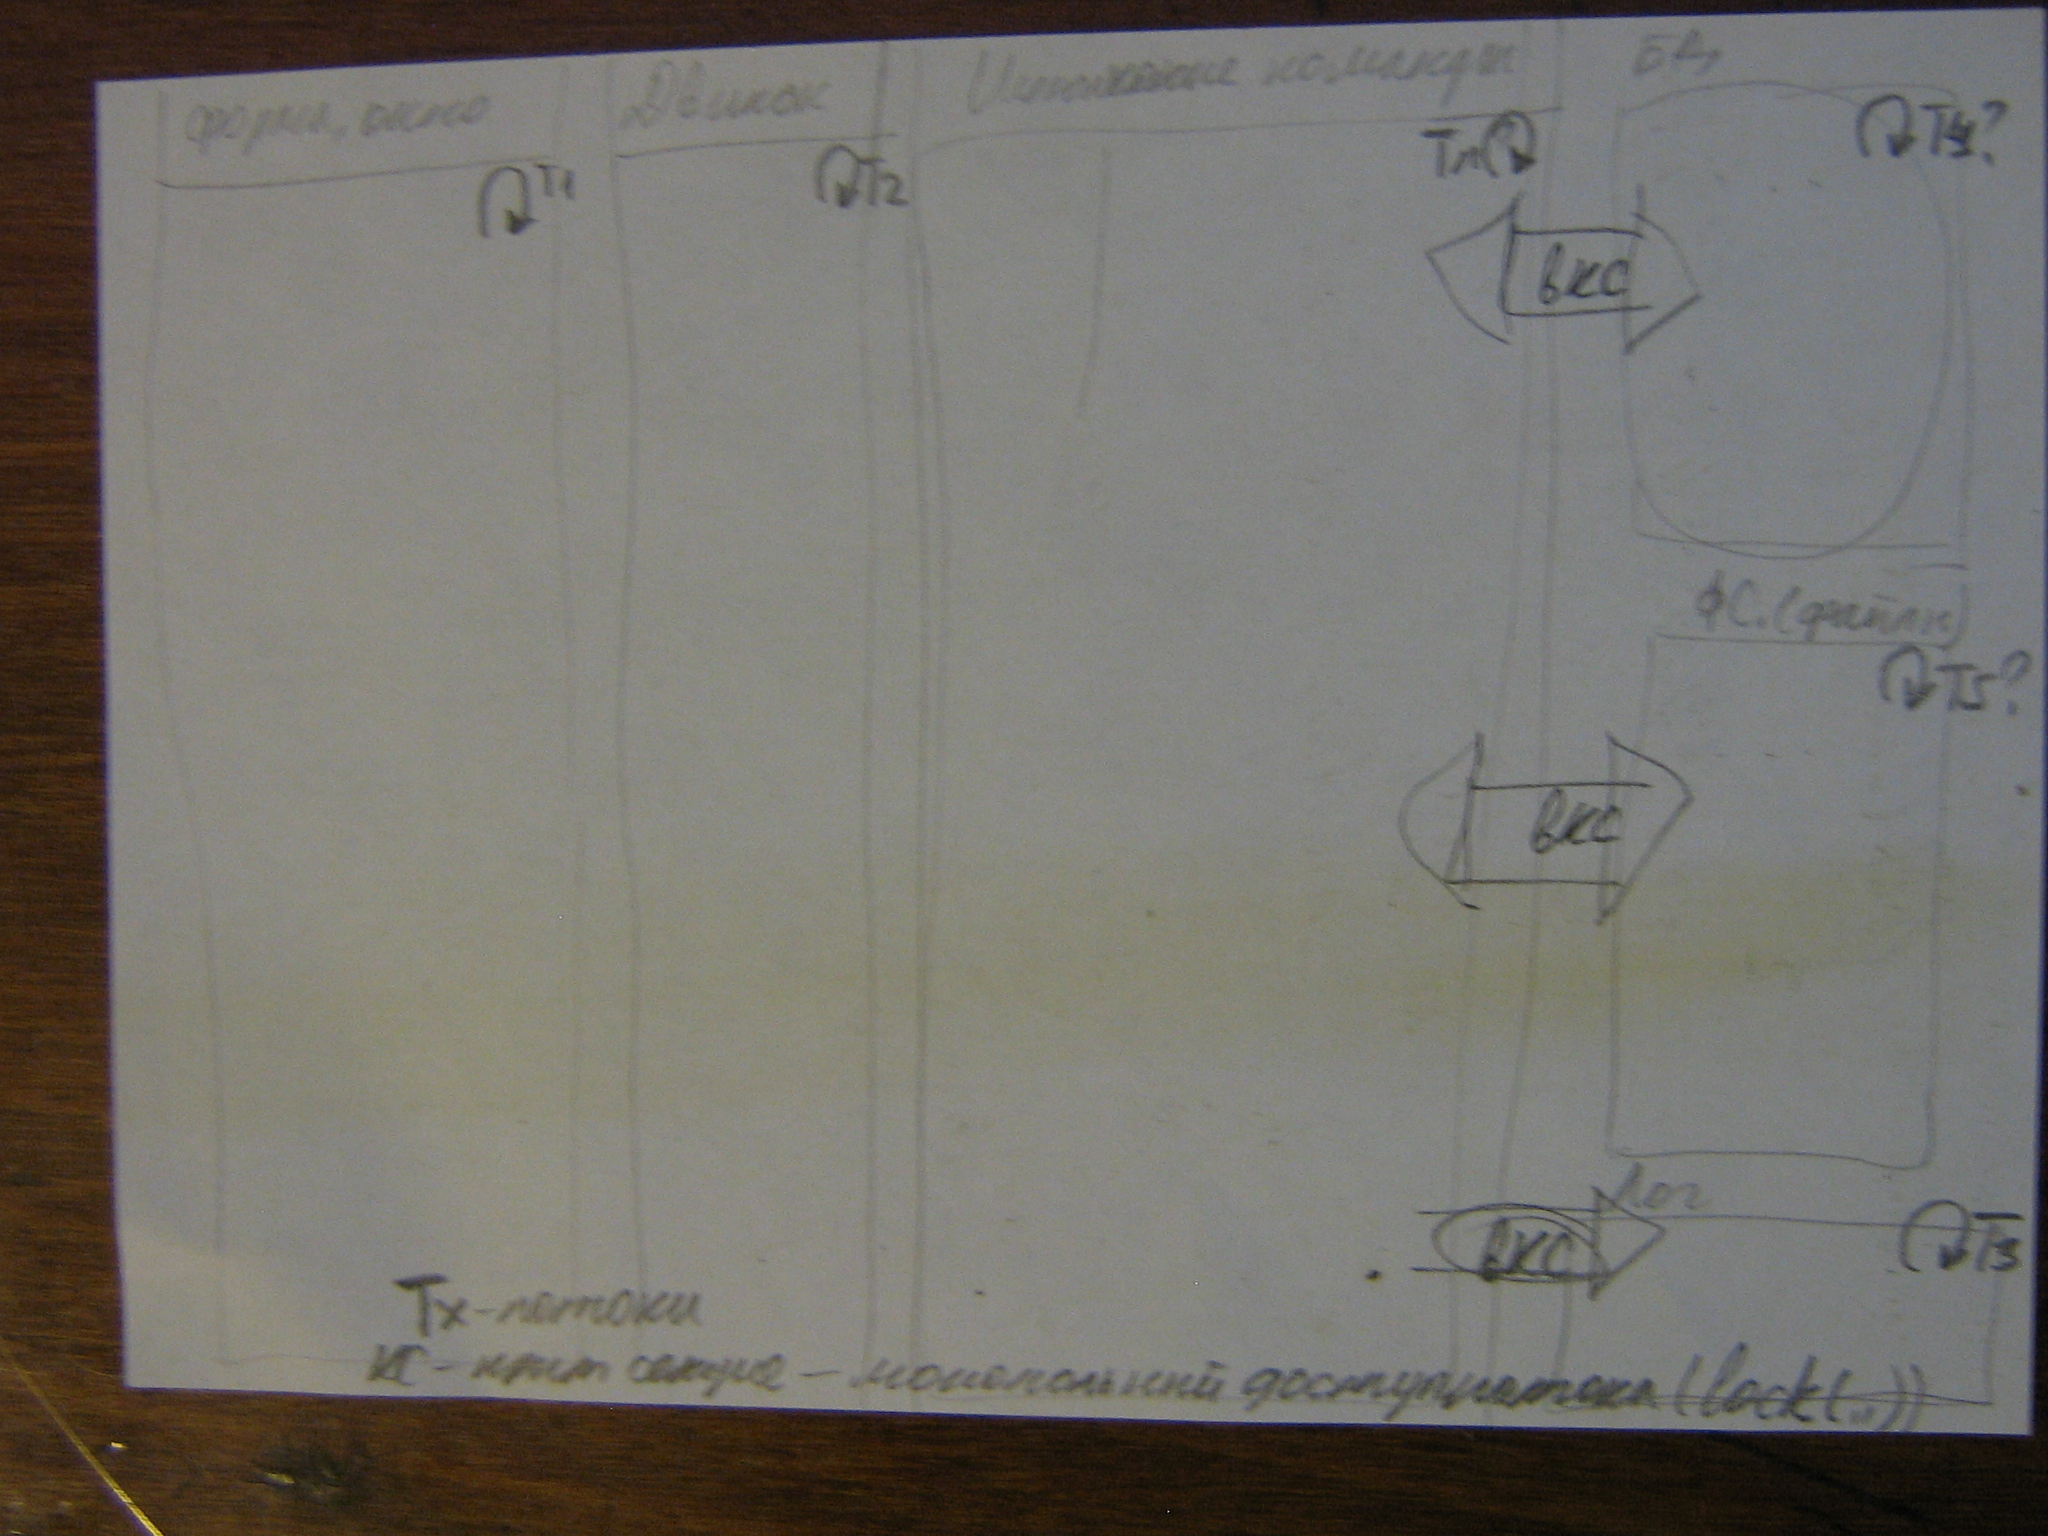 форма, окно
Движок
Исполнение команды
БД
T1
T2
Tn
T4?
ВКС
ФС. (файлы)
T5?
ВКС
Лог
ВКС
T3
Tx - потоки
КС - крит секция - монопольный доступ потока (lock(..))